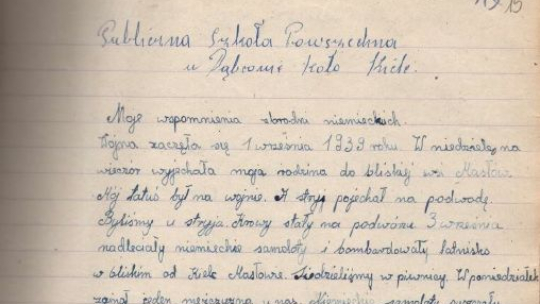 Publiczna Szkoła Powszechna
w Dąbrowie koło Kielc.
Moje wspomnienia zbrodni niemieckich.
Wojna zaczęła się 1 września 1939 roku. W niedzielę, na
wieczór wyjechała moja rodzina do bliskiej wsi Masłów
Mój tatuś był na wojnie. A stryj pojechał na podwodę.
Byliśmy u stryja. Krowy stały na podwórzu 3 września
nadleciały niemieckie samoloty i bombardowały lotnisko
w bliskim od Kielc Masłowie. Siedzieliśmy w piwnicy. W poniedziałek
zginął jeden mężczyzna u nas. Niemieckie samoloty